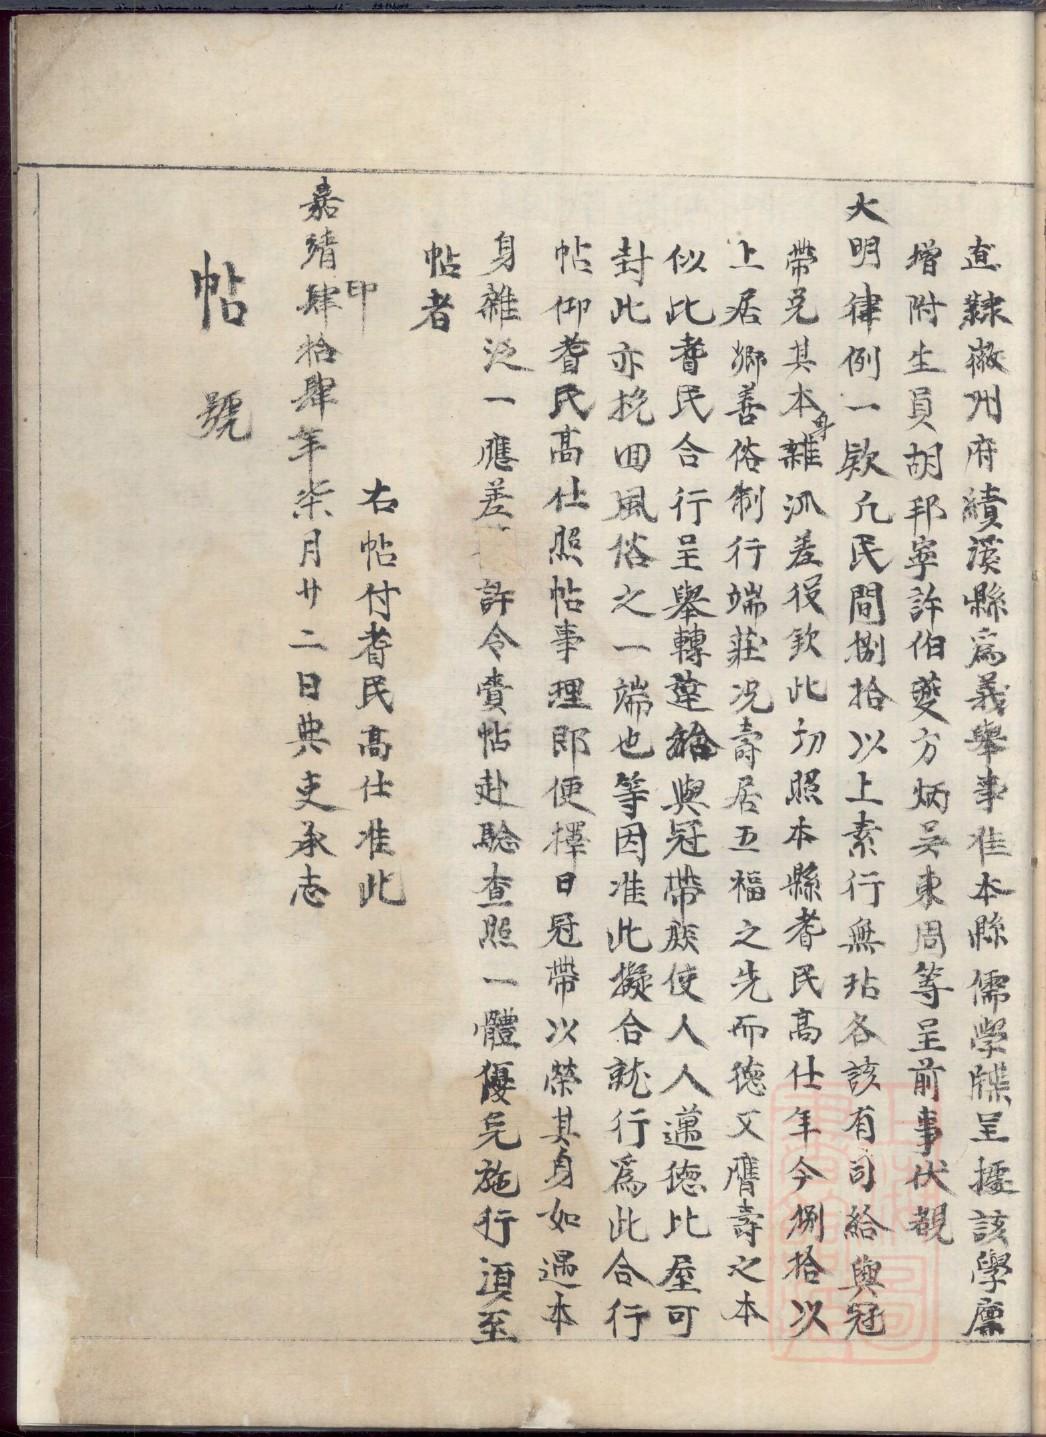 直隸徽州府績溪縣爲義舉事准本縣儒學牒呈據該學廩
增附生員胡邦寧許伯夔方炳吴東周等呈前事伏覩
大明律例一欵凢民間捌拾以上素行無玷各該有司給與冠
帶免其本身雜泒差役欽此切照本縣耆民高仕年今捌拾以
上居鄉善俗制行端莊况壽居五福之先而德又膺壽之本
似此耆民合行呈舉轉達給與冠帶族使人人邁德比屋可
封此亦挽囬風俗之一端也等因准此擬合就行爲此合行
帖仰耆民高仕照帖事理即便擇日冠帶以榮其身如遇本
身雜泛一應差許令賫帖赴驗查照一體優免施行須至
帖者
右帖付耆民高仕准此
印
嘉靖肆拾肆年柒月廿二日典吏承志
帖 號